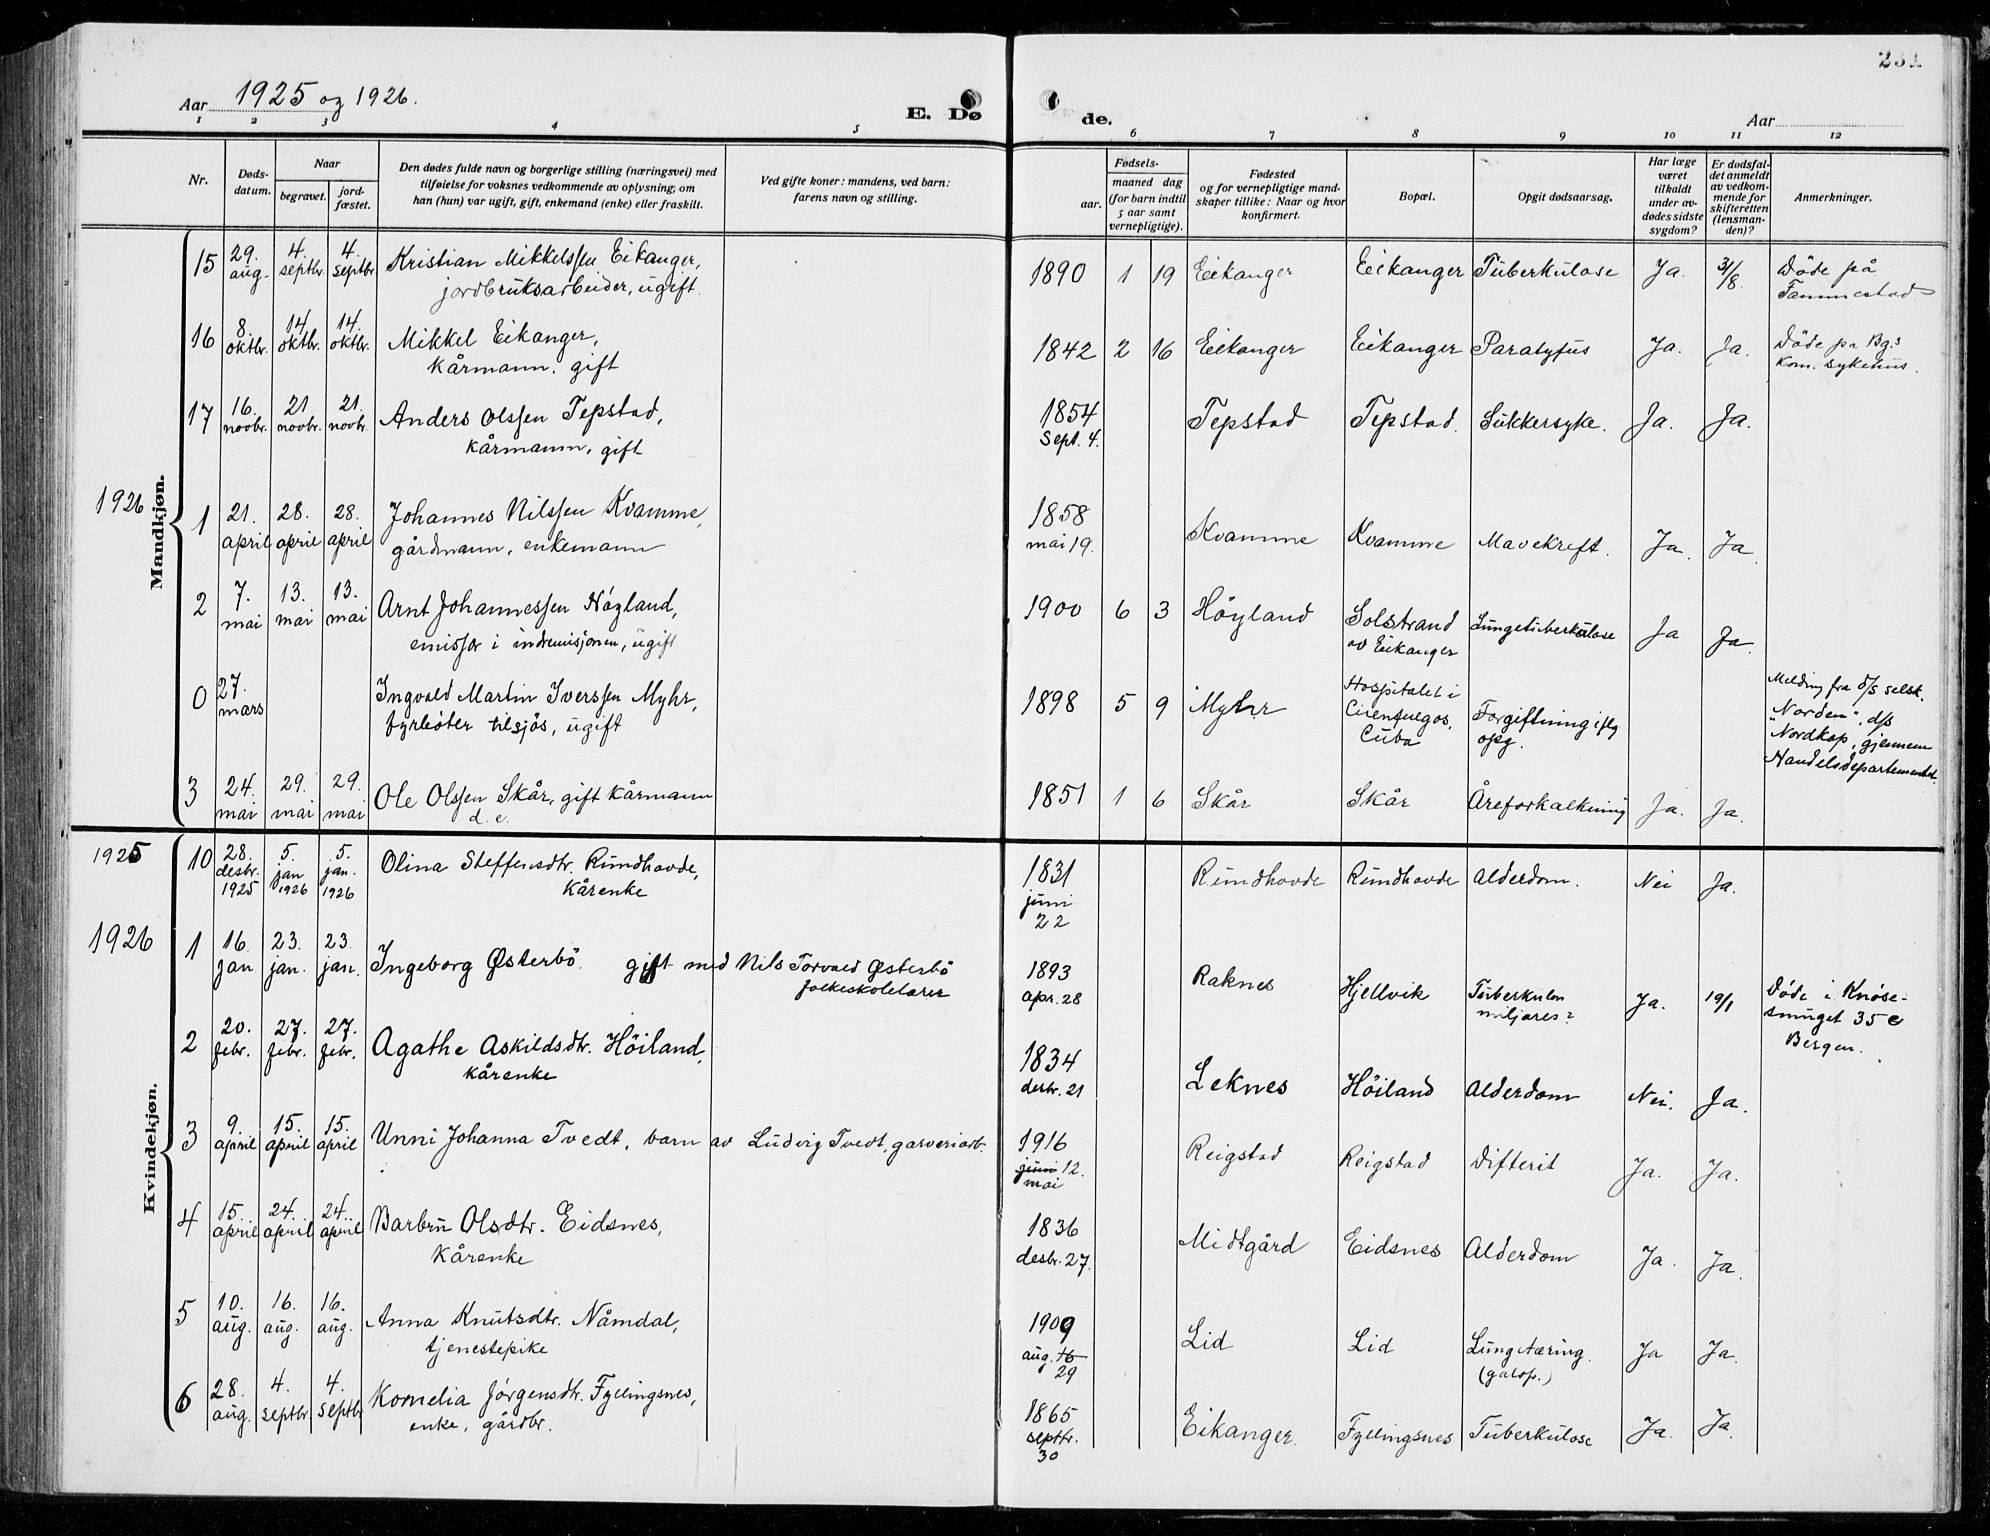 231
Aar 1925 og 1926.
E. Døde.
Aar
1 2 3 4 5 6 7 8 9 10 11 12
Nr.
Døds-
datum.
Naar
begravet.
jord-
fæstet.
Den dødes fulde navn og borgerlige stilling (næringsvei) med
tilføielse for voksnes vedkommende av oplysning, om
han (hun) var ugift, gift, enkemand (enke) eller fraskilt.
Ved gifte koner: mandens, ved barn:
farens navn og stilling.
Fødsels-
aar.
maaned dag
(for barn indtil
5 aar samt
vernepligtige).
Fødested
og for vernepligtige mand-
skaper tillike: Naar og hvor
konfirmert.
Bopæl.
Opgit dødsaarsag.
Har læge
været
tilkaldt
under av-
dødes sidste
sygdom?
Er dødsfal-
det anmeldt
av vedkom-
mende for
skifteretten
(lensman-
den)?
Anmerkninger.
Mandkjøn.
15 29. aug. 4. septbr. 4. septbr. Kristian Mikkelssen Eikanger, 1890 1 19 Eikanger Eikanger Tuberkulose Ja. 31/8. Døde på
jordbruksarbeider, ugift. Tammestad.
16 8. oktbr. 14 oktbr. 14. oktbr. Mikkel Eikanger, 1842 2 16 Eikanger Eikanger Paratyfus Ja. Ja. Døde på Bg.s
kårmann. gift kom. sykehus.
17 16. novbr. 21 novbr. 21. novbr. Anders Olssen Tepstad, 1854 Sept. 4. Tepstad Tepstad. Sukkersyke. Ja. Ja.
kårmann, gift
1926
1 21. april 28. april 28. april Johannes Nilssen Kvamme, 1858 mai 19. Kvamme Kvamme Mavekreft. Ja. Ja.
gårdmann, enkemann
2 7. mai 13. mai 13. mai Arnt Johannessen Høyland, 1900 6 3 Høyland Solstrand Lungetuberkulose Ja Ja.
emissær i indremisjonen, ugift av Eikanger
0 27. mars Ingvald Martin Iverssen Myhr, 1898 5 9 Myhr Hospitalet i Cienfuegos, Cuba Forgiftning iflg opg. Melding fra d/s selsk.
fyrbøter tilsjøs, ugift "Norden", d/s
"Nordkap, gjennem
Handelsdepartementet.
3 24. mai 29. mai 29. mai Ole Olssen Skår, gift kårmann 1851 1 6 Skår Skår Åreforkalkning Ja. Ja.
d. e.
Kvindekjøn.
1925
10 28. desbr. 1925 5. jan 1926 5. jan. 1926 Olina Steffensdtr. Rundhovde, 1831 juni 22 Rundhovde Rundhovde Alderdom. Nei Ja.
kårenke
1926
1 16. jan 23. jan. 23. jan. Ingeborg Østerbø. gift med Nils Torvald Østerbø 1893 apr. 28 Raknes Hjellvik Tuberkulos miljares? Ja. 19/1 Døde i Knøse-
folkeskolelærer smuget 35 c
Bergen.
2 20. febr. 27. febr. 27. febr. Agathe Askildsdtr. Höiland, 1834 desbr. 21 Leknes Höiland Alderdom Nei. Ja.
kårenke
3 9. april 15. april 15. april Unni Johanna Tvedt, barn av Ludvig Tvedt, garveriarb. 1916 juni 12. mai Reigstad Reigstad Difterit Ja. Ja.
4 15. april 24. april 24. april Barbru Olsdtr. Eidsnes, 1836 desbr. 27. Midtgård Eidsnes Alderdom Ja. Ja.
kårenke
5 10. aug. 16. aug. 16. aug. Anna Knutsdtr. Nåmdal, 1909 aug. 16 29 Lid Lid Lungetæring. (galop.) Ja Ja.
tjenestepike
6 28. aug. 4. septbr 4. septbr Kornelia Jørgensdtr. Fyllingsnes, 1865 septbr. 30 Eikanger. Fyllingsnes Tuberkulose Ja. Ja.
enke, gårdbr.